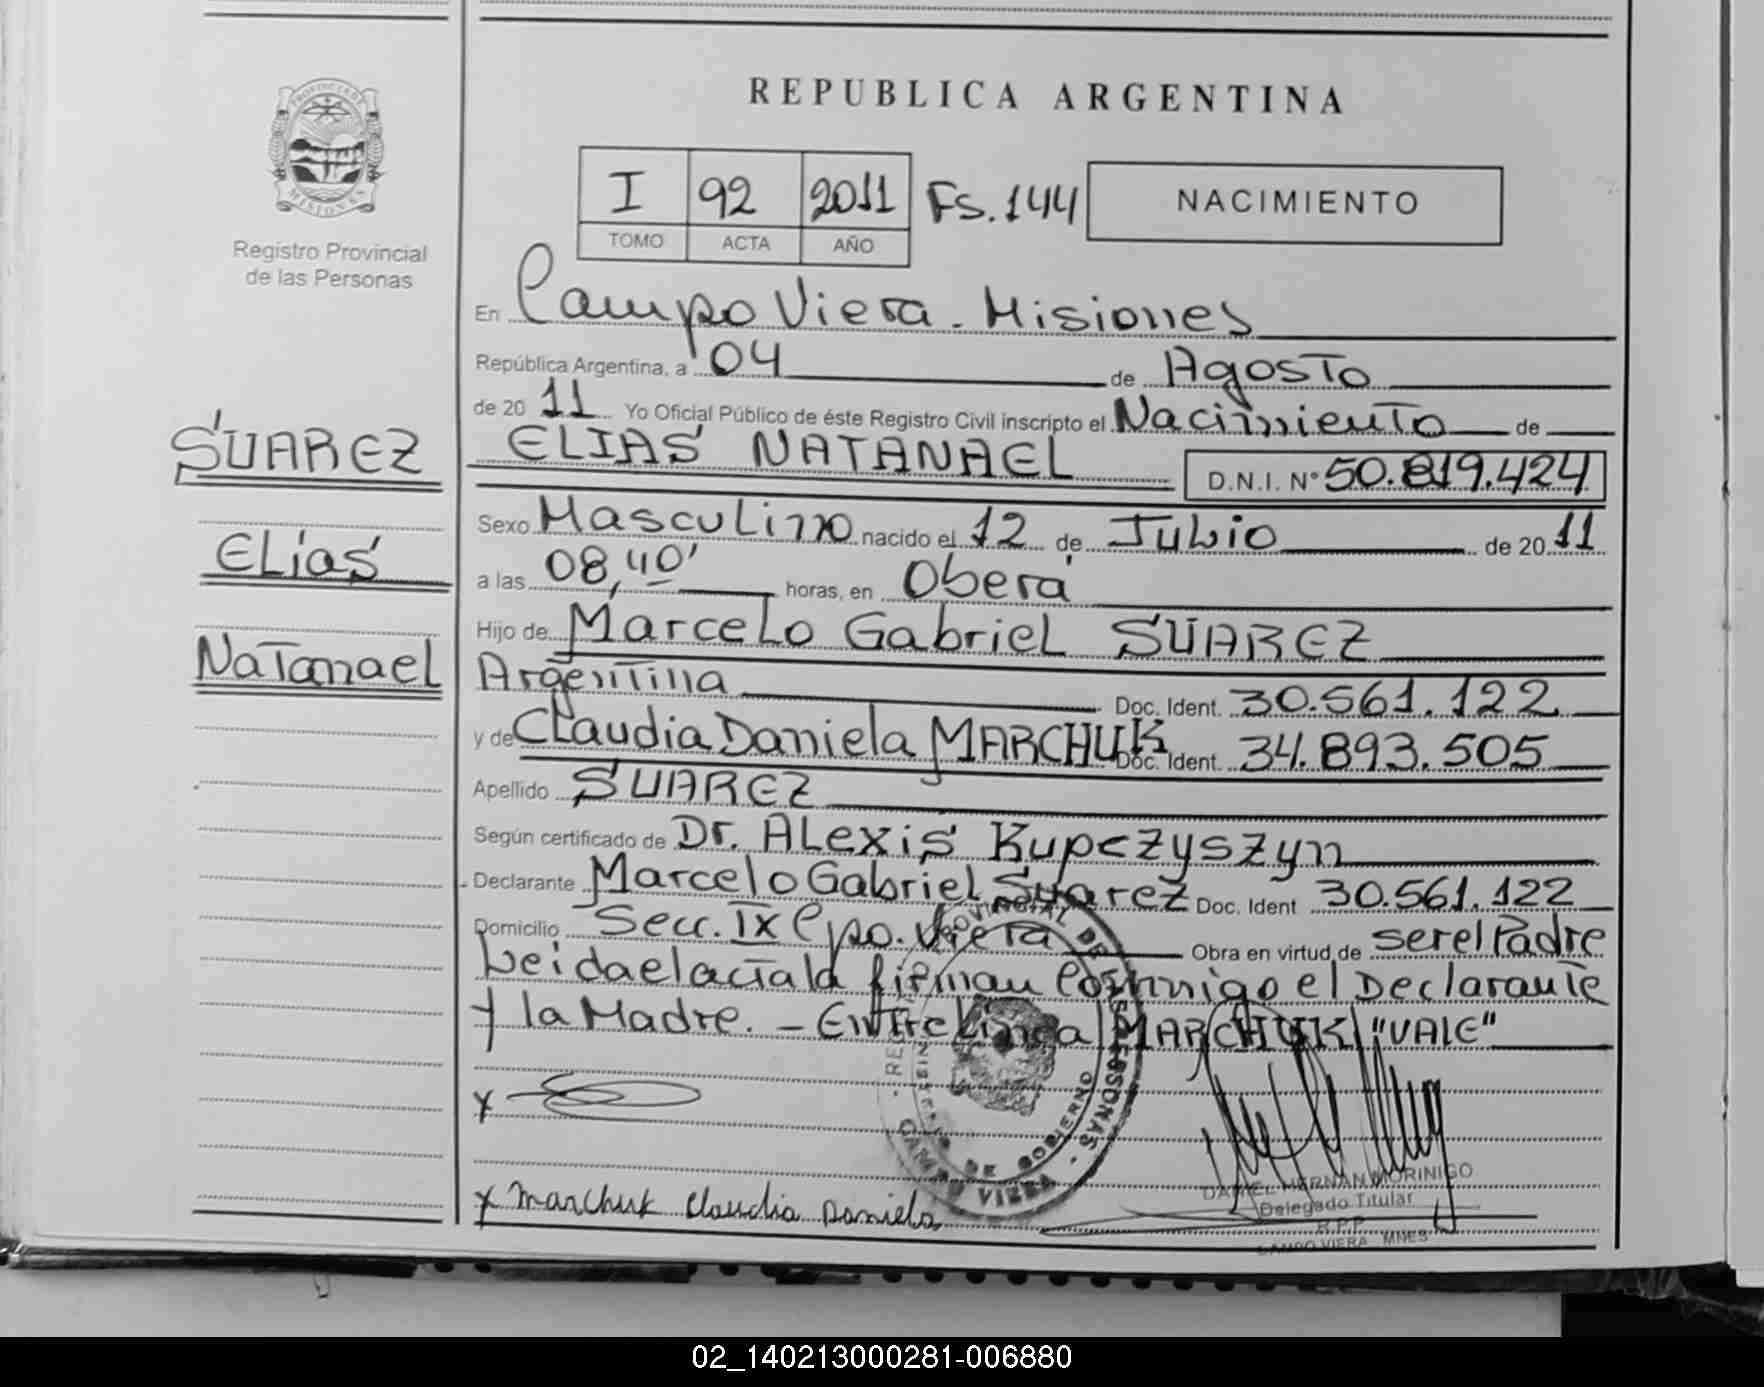 REPUBLICA ARGENTINA
PROVINCIA DE MISIONES
Registro Provincial
de las Personas
I 92 2011 Fs. 144 NACIMIENTO
TOMO ACTA AÑO
En Campo Viera - Misiones
República Argentina, a 04 de Agosto
de 20 11 Yo Oficial Público de éste Registro Civil inscripto el Nacimiento de
SUAREZ
Elias
Natanael
ELIAS NATANAEL D.N.I. N° 50.819.424
Sexo Masculino nacido el 12 de Julio de 20 11
a las 08,40' horas, en Oberá
Hijo de Marcelo Gabriel SUAREZ
Argentina Doc. Ident. 30.561.122
y de Claudia Daniela MARCHUK Doc. Ident. 34.893.505
Apellido SUAREZ
Según certificado de Dr. Alexis Kupczyszyn
Declarante Marcelo Gabriel Suarez Doc. Ident 30.561.122
Domicilio Secc. IX Cpo. Viera Obra en virtud de ser el Padre
Leida el acta la firman conmigo el Declarante
y la Madre. - Entre Linea / MARCHUK / "VALE"
x
x Marchuk Claudia Daniela
DANIEL HERNAN MORINIGO
Delegado Titular
R.P.P.
CAMPO VIERA MNES
02_140213000281-006880